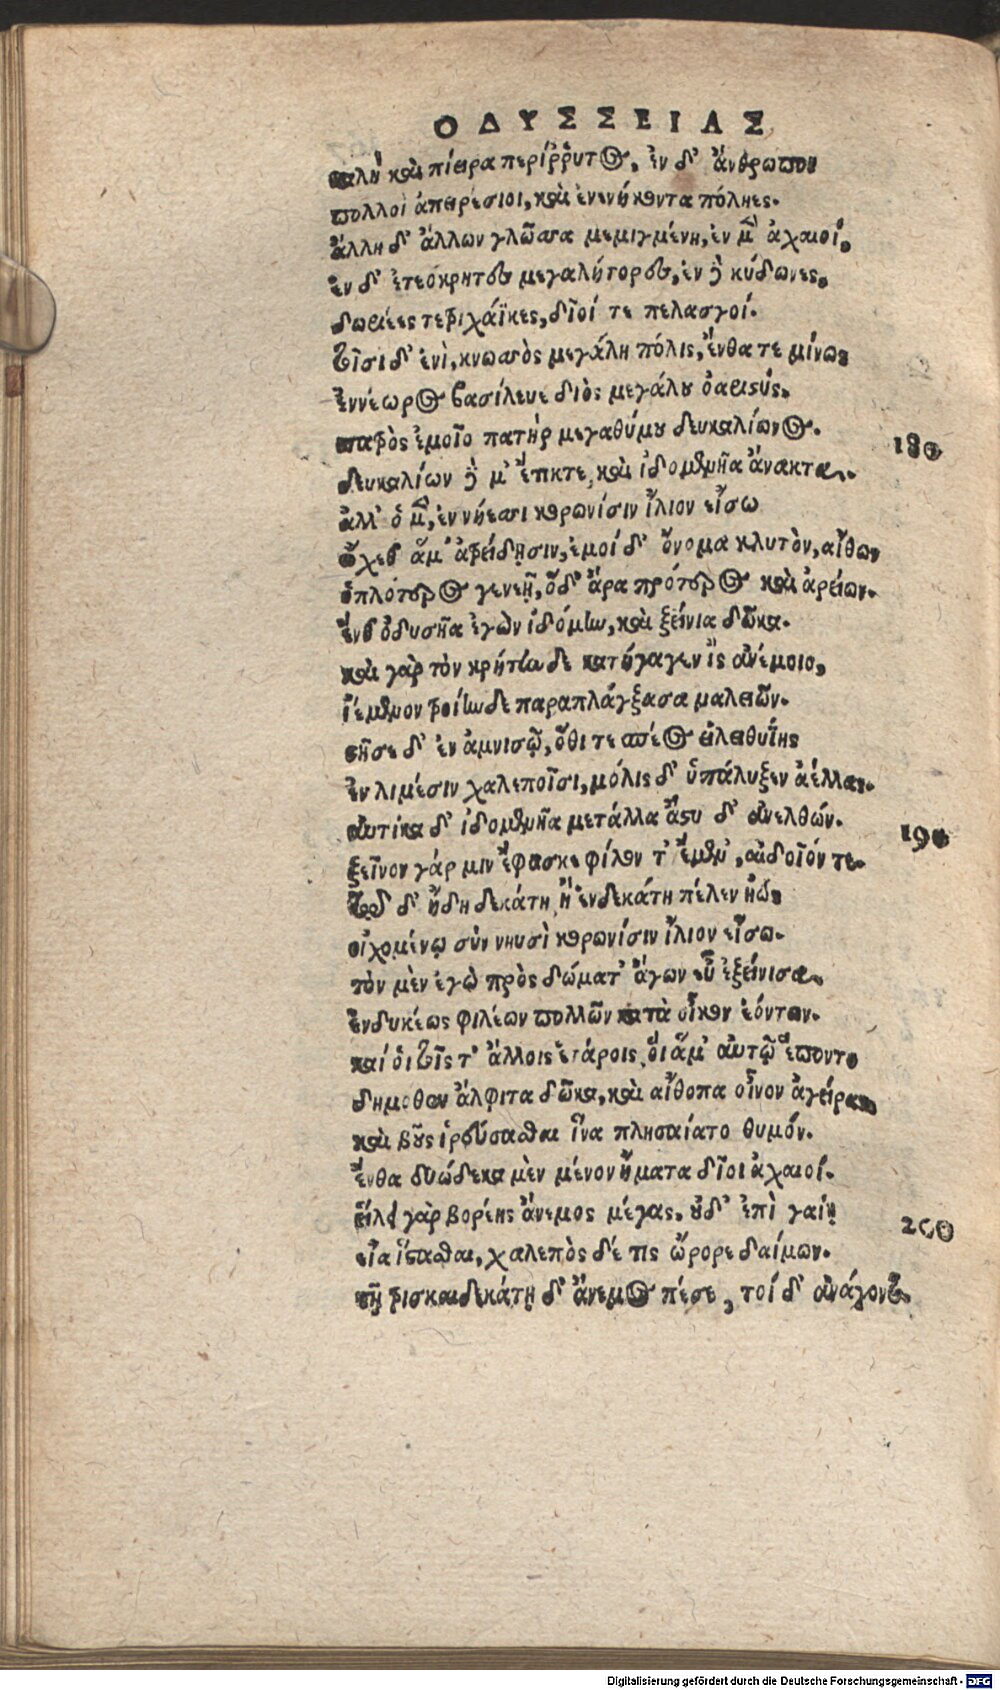 ΟΔΥΣΣΕΙΑΣ
καλὴ καὶ πίειρα περίῤῥυτος, ἐν δ' ἄνθρωποι
πολλοὶ ἀπειρέσιοι, καὶ ἐννήκοντα πόληες.
ἄλλη δ' ἄλλων γλῶσσα μεμιγμένη, ἐν μὲν ἀχαιοί,
ἐν δ' ἐτεόκρητες μεγαλήτορες, ἐν δὲ κύδωνες,
δωριέες τε τριχάϊκες, δῖοί τε πελασγοί.
τοῖσι δ' ἐνὶ, κνωσσὸς μεγάλη πόλις, ἔνθα τε μίνως
ἐννέωρος βασίλευε διὸς μεγάλου ὀαριστύς,
πατρὸς ἐμοῖο πατὴρ μεγαθύμου δευκαλίωνος.
180
δευκαλίων δὲ μ' ἔτικτε, καὶ ἰδομενῆα ἄνακτα.
ἀλλ' ὁ μὲν, ἐν νήεσσι κορωνίσιν ἴλιον εἴσω
ᾤχετο ἅμ' ἀτρείδῃσιν, ἐμοὶ δ' ὄνομα κλυτὸν, αἴθων
ὁπλότερος γενεῇ, ὅδ' ἄρα πρότερος καὶ ἀρείων.
ἔνθ' ὀδυσῆα ἐγὼν ἰδόμην, καὶ ξείνια δῶκα.
καὶ γὰρ τὸν κρήτηνδε κατήγαγεν ἲς ἀνέμοιο,
ἱέμενον τροίηνδε παραπλάγξασα μαλειῶν.
στῆσε δ' ἐν ἀμνισῷ, ὅθι τε σπέος εἰλειθυίης
ἐν λιμέσιν χαλεποῖσι, μόλις δ' ὑπάλυξεν ἀέλλας.
αὐτίκα δ' ἰδομενῆα μετάλλα ἄστυ δ' ἀνελθών.
190
ξεῖνον γάρ μιν ἔφασκε φίλον τ' ἔμεν, αἰδοῖόν τε.
τῷ δ' ἤδη δεκάτη ἢ ἐνδεκάτη πέλεν ἠὼς
οἰχομένῳ σὺν νηυσὶ κορωνίσιν ἴλιον εἴσω.
τὸν μὲν ἐγὼ πρὸς δώματ' ἄγων εὖ ἐξείνισα,
ἐνδυκέως φιλέων πολλῶν κατὰ οἶκον ἐόντων.
καί οἱ τοῖς τ' ἄλλοις ἑτάροις, οἳ ἅμ' αὐτῷ ἕποντο
δημόθεν ἄλφιτα δῶκα, καὶ αἴθοπα οἶνον ἀγείρας
καὶ βοῦς ἱρεύσασθαι ἵνα πλησαίατο θυμόν.
ἔνθα δυώδεκα μὲν μένον ἤματα δῖοι ἀχαιοί.
εἴλει γὰρ βορέης ἄνεμος μέγας, οὐδ' ἐπὶ γαίῃ
200
εἴα ἵστασθαι, χαλεπὸς δέ τις ὤρορε δαίμων.
τῇ τρισκαιδεκάτῃ δ' ἄνεμος πέσε, τοὶ δ' ἀνάγοντο.
Digitalisierung gefördert durch die Deutsche Forschungsgemeinschaft - DFG